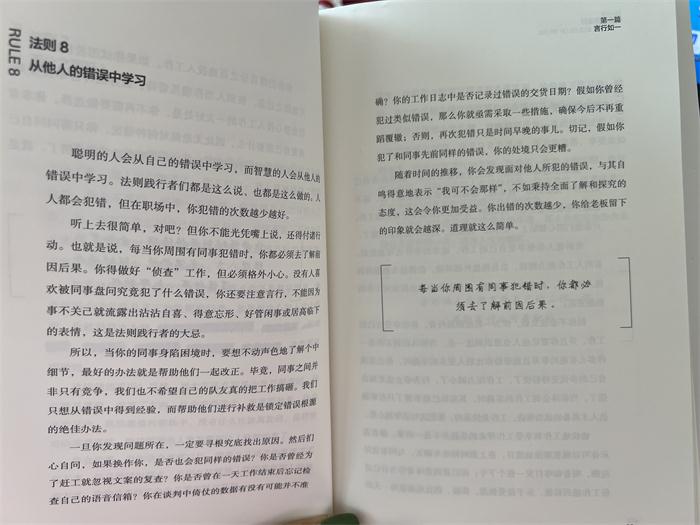 RULE 8
法则 8
从他人的错误中学习
聪明的人会从自己的错误中学习，而智慧的人会从他人的
错误中学习。法则践行者们都是这么说、也都是这么做的。人
人都会犯错，但在职场中，你犯错的次数越少越好。
听上去很简单，对吧？但你不能光凭嘴上说，还得付诸行
动。也就是说，每当你周围有同事犯错时，你都必须去了解前
因后果。你得做好“侦查”工作，但必须格外小心。没有人喜
欢被同事盘问究竟犯了什么错误，你还要注意言行，不能因为
事不关己就流露出沾沾自喜、得意忘形、好管闲事或居高临下
的表情，这是法则践行者的大忌。
所以，当你的同事身陷困境时，要想不动声色地了解个中
细节，最好的办法就是帮助他们一起改正。毕竟，同事之间并
非只有竞争，我们也不希望自己的队友真的把工作搞砸。我们
只想从错误中得到经验，而帮助他们进行补救是锁定错误根源
的绝佳办法。
一旦你发现问题所在，一定要寻根究底找出原因。然后扪
心自问，如果换作你，是否也会犯同样的错误？你是否曾经为
了赶工就忽视文案的复查？你是否曾在一天工作结束后忘记检
查自己的语音信箱？你在谈判中倚仗的数据有没有可能并不准
第一篇
言行如一
确？你的工作日志中是否记录过错误的交货日期？假如你曾经
犯过类似错误，那么你就亟需采取一些措施，确保今后不再重
蹈覆辙；否则，再次犯错只是时间早晚的事儿。切记，假如你
犯了和同事先前同样的错误，你的处境只会更糟。
随着时间的推移，你会发现面对他人所犯的错误，与其自
鸣得意地表示“我可不会那样”，不如秉持全面了解和探究的
态度，这会令你更加受益。你出错的次数越少，你给老板留下
的印象就会越深。道理就这么简单。
每当你周围有同事犯错时，你都必
须去了解前因后果。